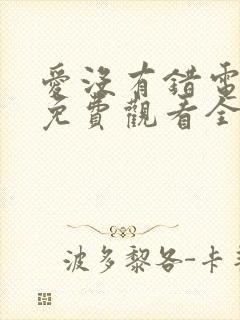 愛沒有錯電
免費觀看全
波多黎各-卡